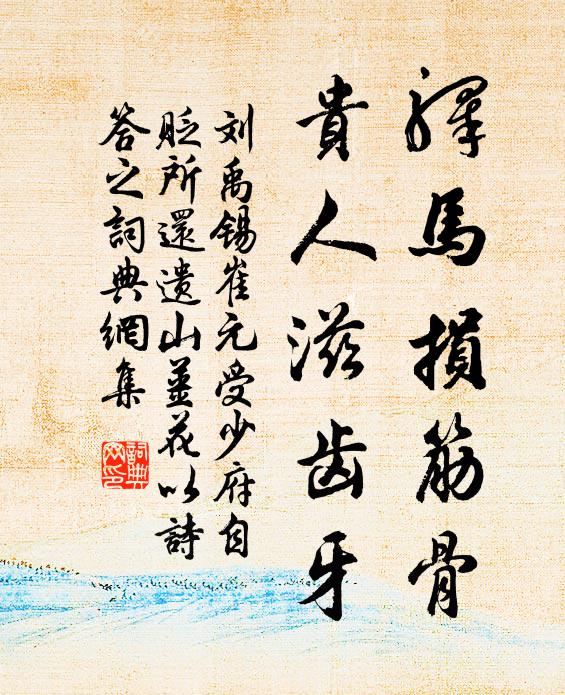 驛馬損筋骨
貴人滋齿牙
刘禹锡崔元受少府自
貶所還遺山姜花以詩
答之詞典網集
詞典網印